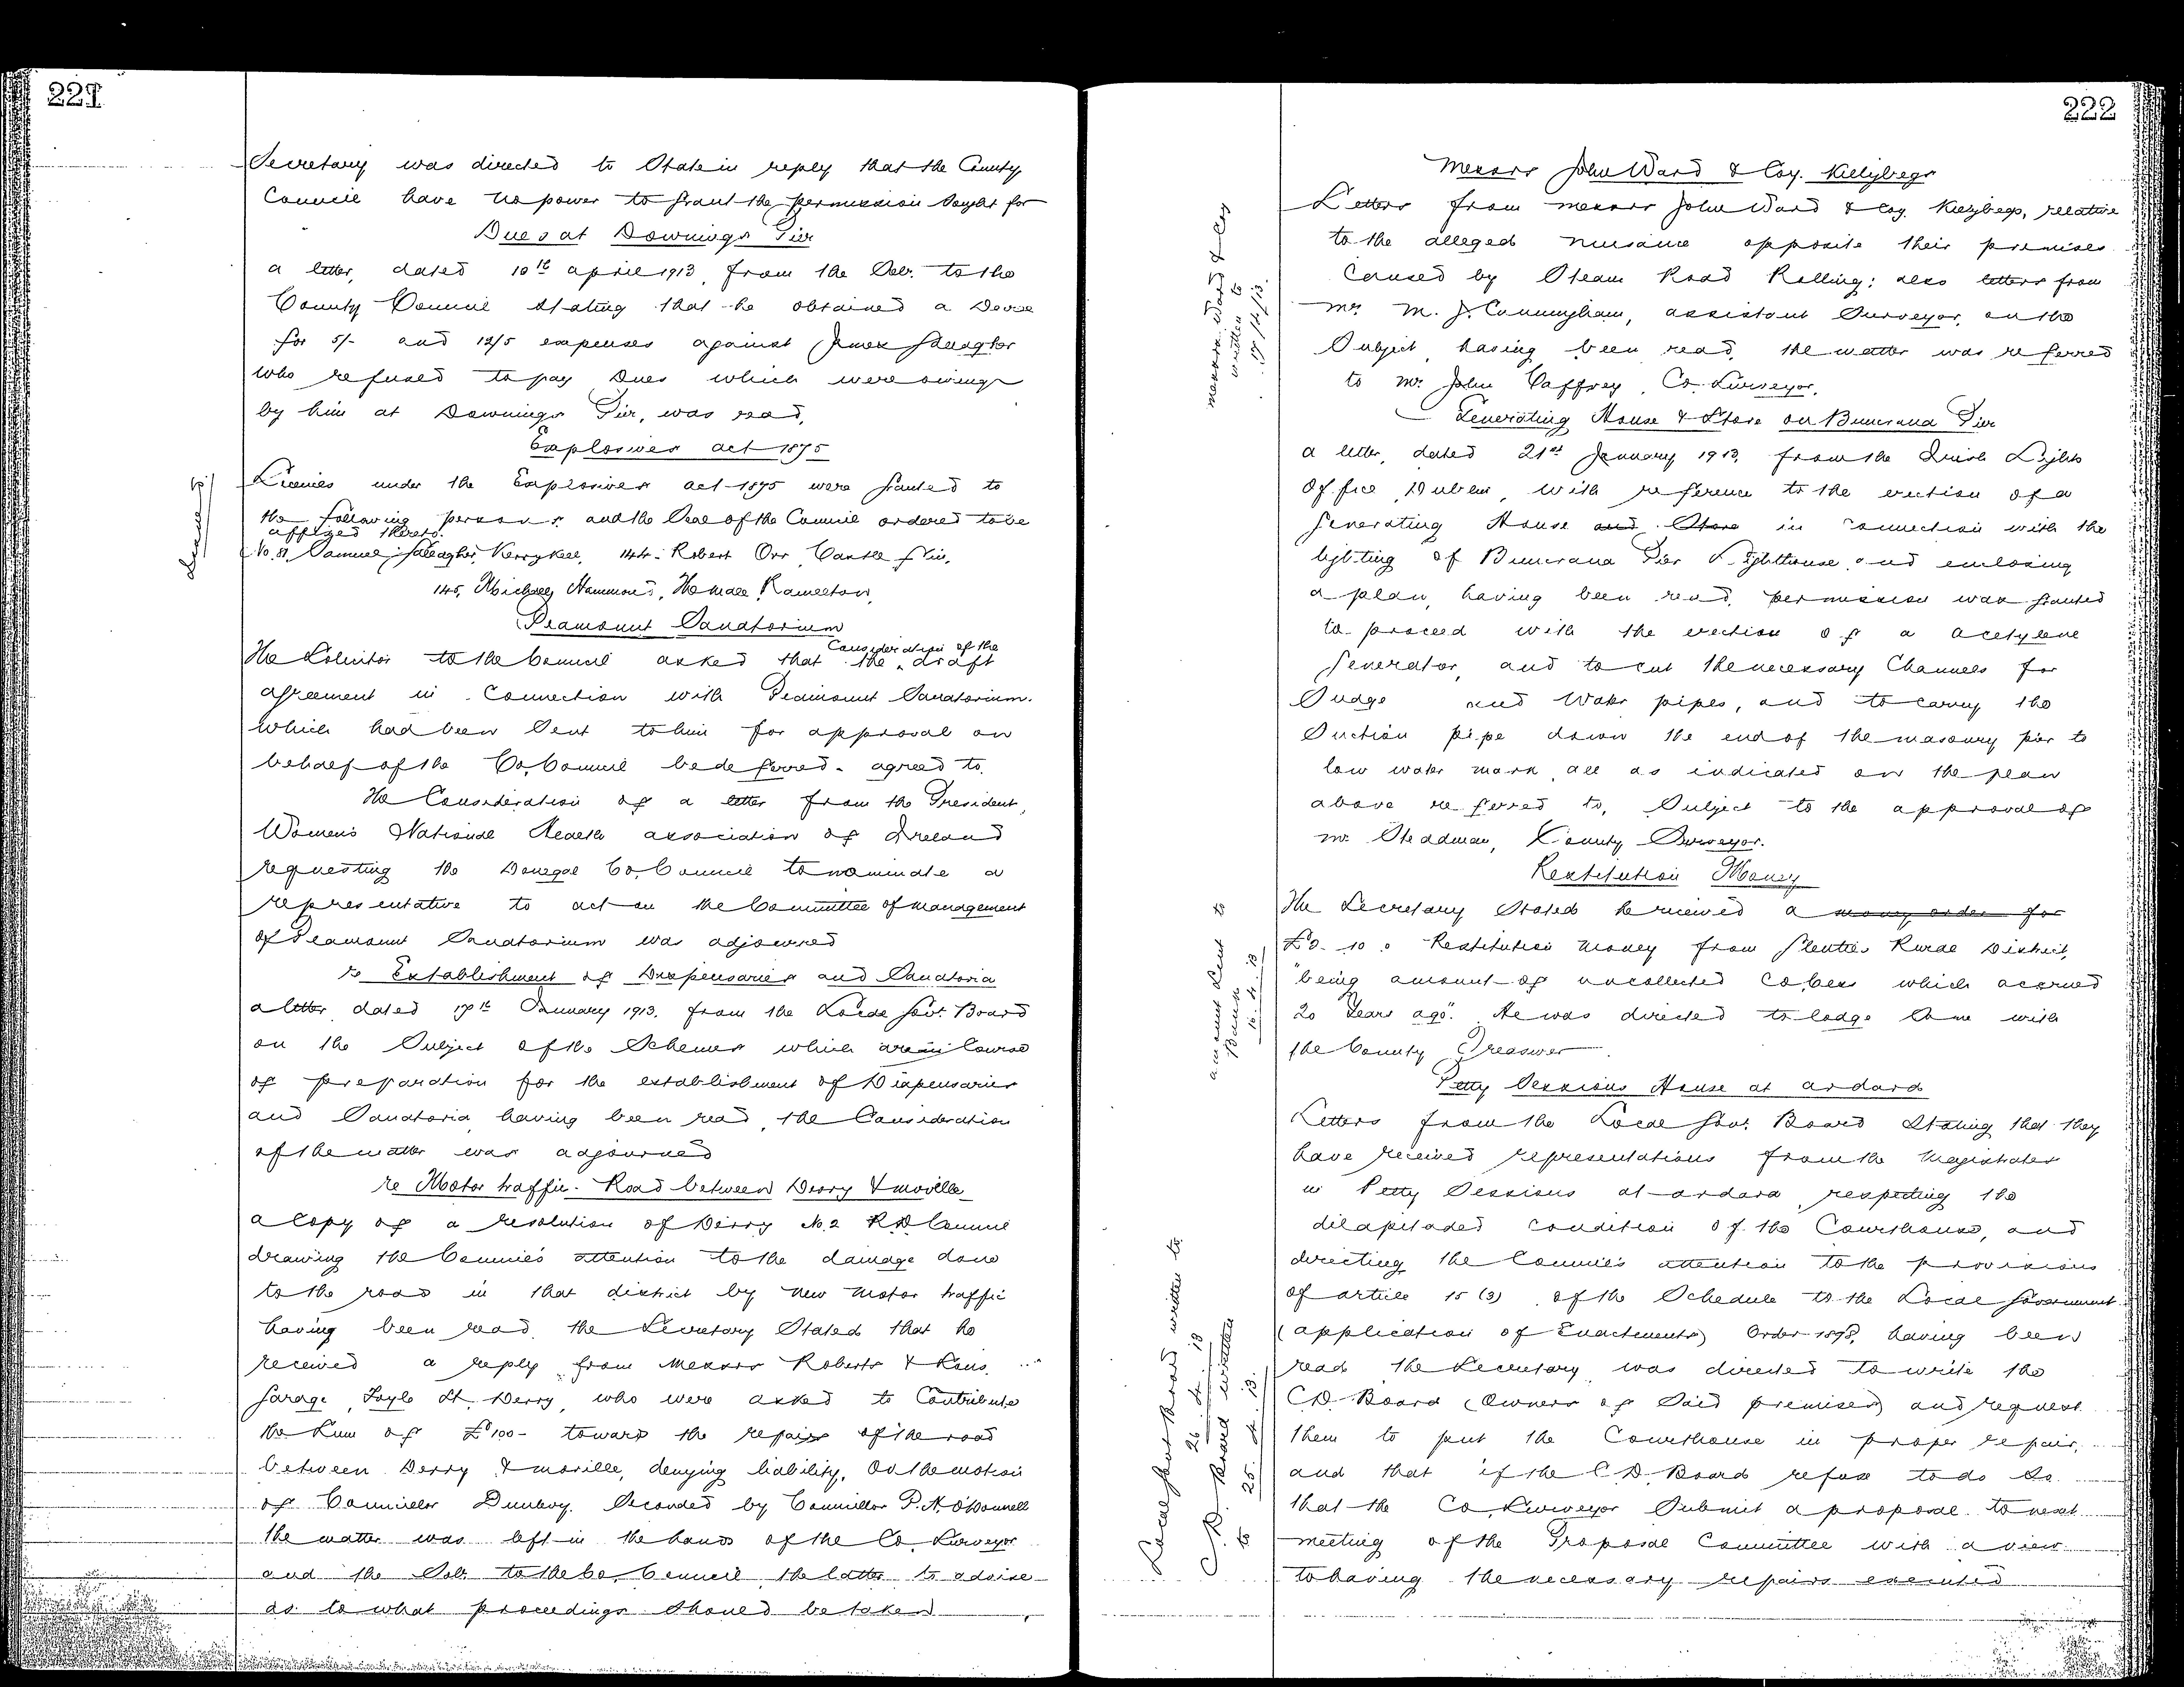 221
Secretary was directed to State in reply that the County
Council have no power to grant the permission sought for
Dues at Downings Pier
a letter, dated 10th april 1913, from the Solr. to the
County Council stating that he obtained a Decree
for 5/- and 12/5 expenses against James Gallagher
who refused to pay Dues which were owing
by him at Downings Pier, was read.
Explosives act 1875
Licenses under the Explosives act 1875 were granted to
the following persons and the Seal of the Council ordered to be
affixed thereto.
No. 81, Samuel Gallagher, Kerrykeel, 144. Robert Orr Castle fin,
145, Michael Hammond, The Mall, Ramelton,
Peamount Sanatorium
The Solicitor to the Council asked that the consideration of the draft
agreement in Connection with Peamount Sanatorium.
which had been Sent to him for approval on
behalf of the Co. Council be deferred - agreed to.
The Consideration of a letter from the President,
Women's National Health association of Ireland
requesting the Donegal Co. Council to nominate a
representative to act on the Committee of management
of Peamount Sanatorium was adjourned
re Establishment of Dispensaries and Sanatoria
a letter dated 17th January 1913, from the Local Govt. Board
on the Subject of the Schemes which are in Course
of preparation for the establishment of Dispensaries
and Sanatoria having been read, the Consideration
of the matter was adjourned
re Motor traffic. Road between Derry & Moville
a Copy of a resolution of Derry No. 2 R D Council
drawing the Council's attention to the damage done
to the road in that district by New Motor traffic
having been read, the Secretary Stated that he
received a reply from Messrs Roberts &
Garage, Foyle St. Derry, who were asked to Contribute
the Sum of £100- toward the repairs of the road
between Derry & Moville, denying liability. On the motion
of Councillor Dunlevy. Seconded by Councillor P. A. O'Donnell
the matter was left in the hands of the Co. Surveyor
and the Solr to the Co. Council, the latter to advise
as to what proceedings should be taken
222
Messrs John Ward & Coy. Killybegs
Letters from Messrs John Ward & Coy. Killybegs, relative
to the alleged nuisance opposite their premises
Caused by Steam Road Rolling; also letters from
Mr. M. J. Cunningham, assistant Surveyor, on the
Subject having been read, the matter was referred
to Mr. John Caffrey, Co. Surveyor.
Messrs Ward & Coy
written to
17/4/13
Generating House & Store on Buncrana Pier
a letter, dated 21st January 1913, from the Irish Lights
Office, Dublin, with reference to the erection of a
Generating House and Store in Connection with the
lighting of Buncrana Pier Lighthouse, and enclosing
a plan, having been read, permission was granted
to proceed with the erection of a acetylene
generator, and to cut the necessary Channels for
Sludge and Water pipes, and to carry the
Suction pipe down the end of the masonry pier to
low water mark, all as indicated on the plan
above referred to, Subject to the approval of
Mr. Steadman, County Surveyor.
Restitution Money
The Secretary Stated he received a money order for
£0. 10. 0 Restitution Money from Glenties Rural District,
"being amount of uncollected Co. Cess which accrued
20 years ago". He was directed to lodge Same with
the County Treasurer.
amount sent to
Bank
16.4.13
Petty Sessions House at ardara
Letters from the Local Govt. Board Stating that they
have received representations from the Magistrates
in Petty Sessions at ardara, respecting the
dilapitated condition of the Courthouse, and
directing the Council's attention to the provisions
of article 15 (3) of the Schedule to the Local Government
(application of Enactments) Order 1898, having been
read the Secretary was directed to write the
C.D. Board (Owners of Said premises) and request
them to put the Courthouse in proper repair,
and that if the C. D. Board refuse to do So
that the Co. Surveyor Submit a proposal to next
meeting of the Proposal Committee with a view
to having the necessary repairs executed
Local Govt Board written to
26.4.13
C.D. Board written
to 25.4.13.